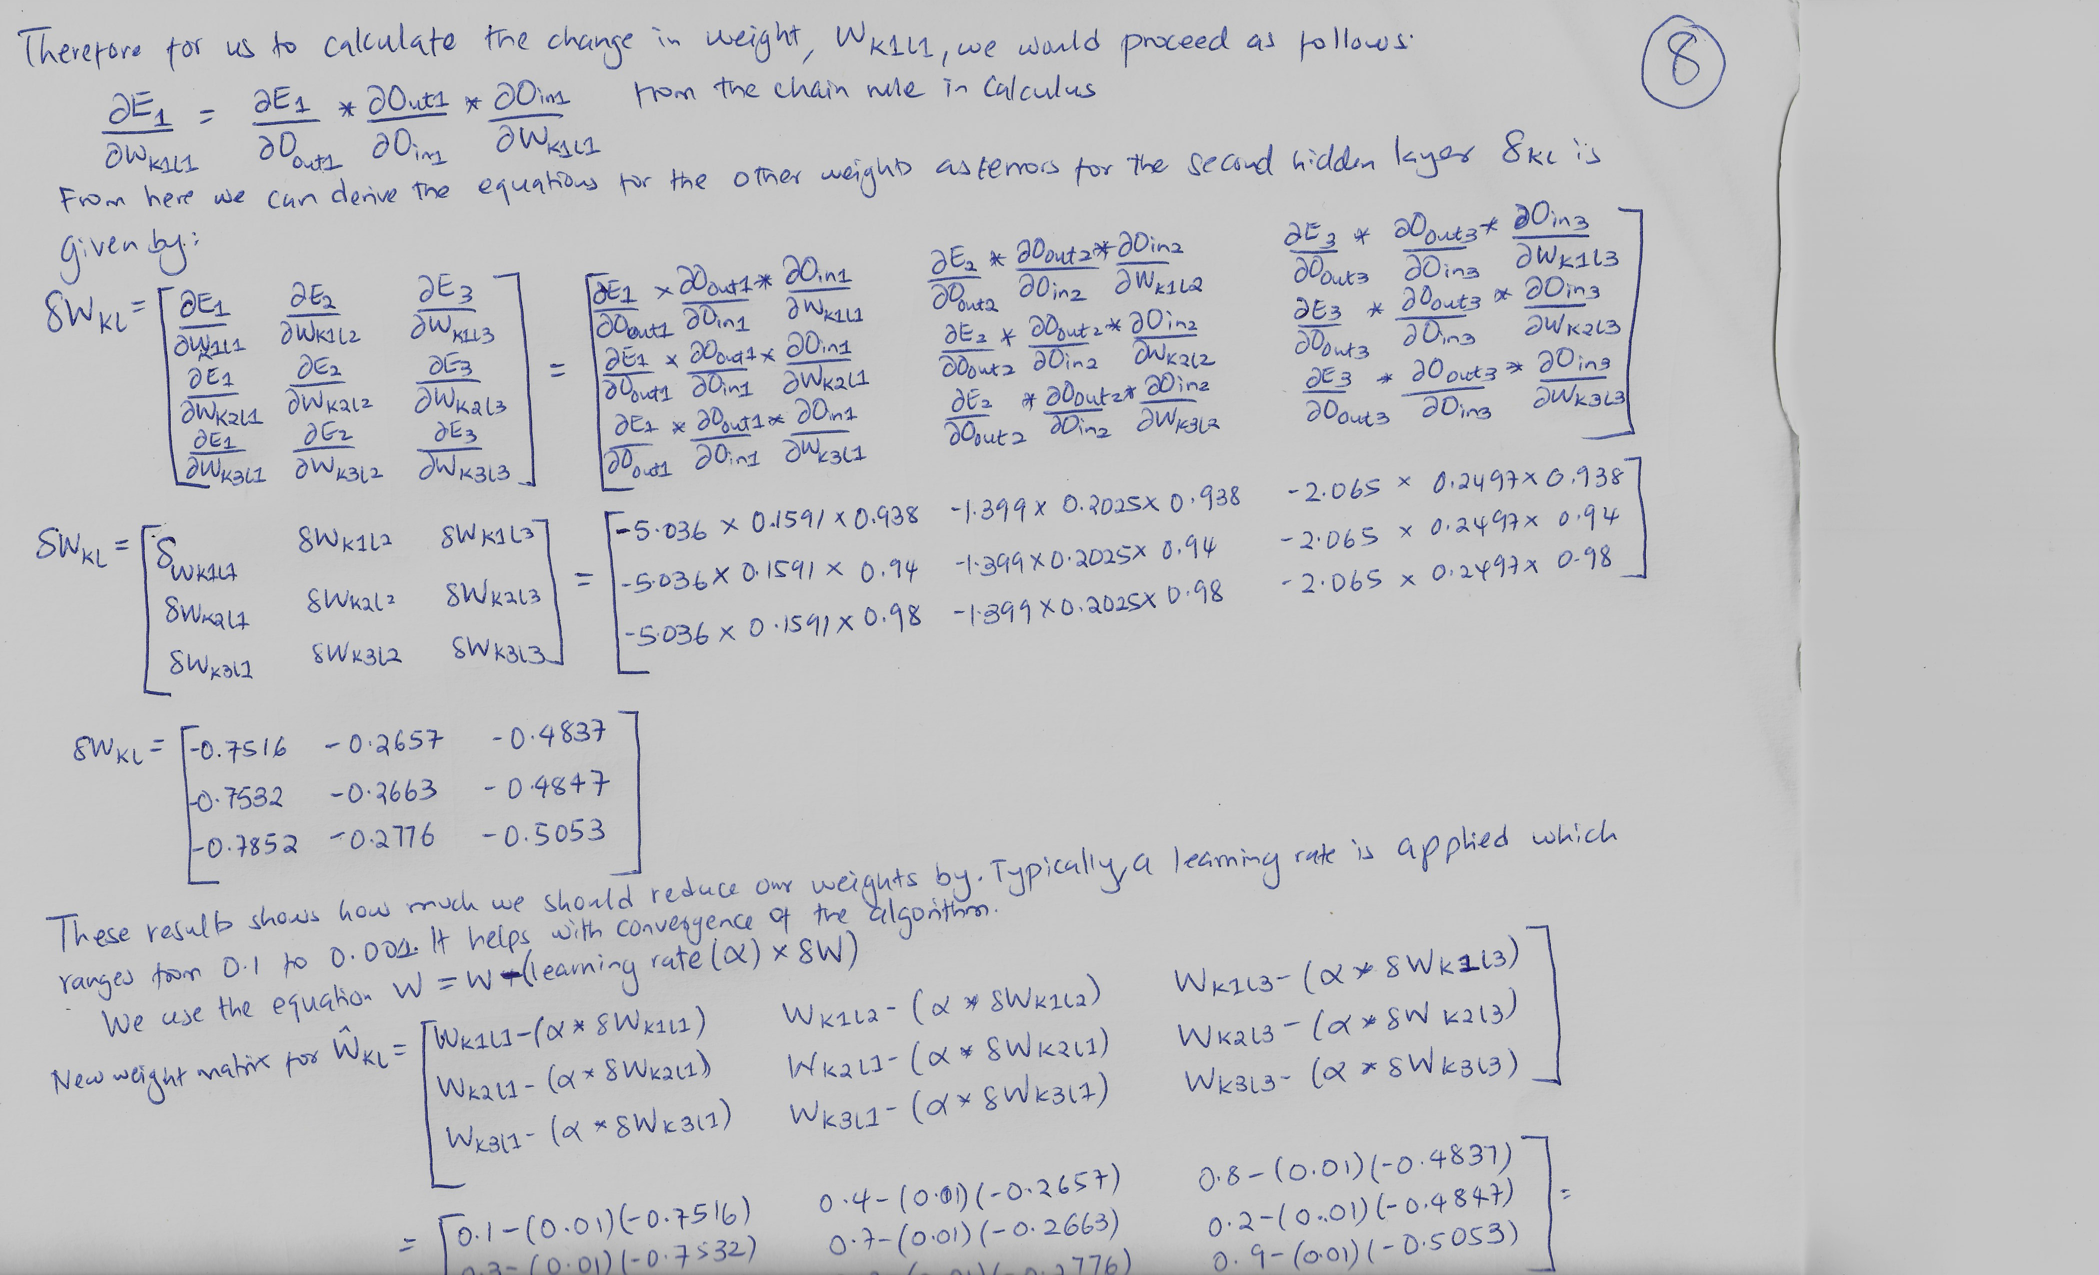 Therefore for us to calculate the change in weight, WK1L1, we would proceed as follows.
8
∂E1/∂WK1L1 = ∂E1/∂Oout1 * ∂Out1/∂Oin1 * ∂Oin1/∂WK1L1 from the chain rule in Calculus
From here we can derive the equations for the other weights as errors for the second hidden layer δKL is
given by:
δWKL = [∂E1/∂WK1L1 ∂E2/∂WK1L2 ∂E3/∂WK1L3] = [∂E1/∂Oout1 × ∂Oout1/∂Oin1 * ∂Oin1/∂WK1L1 ∂E2/∂Oout2 * ∂Oout2/∂Oin2 * ∂Oin2/∂WK1L2 ∂E3/∂Oout3 * ∂Oout3/∂Oin3 * ∂Oin3/∂WK1L3]
∂E1/∂WK2L1 ∂E2/∂WK2L2 ∂E3/∂WK2L3 ∂E1/∂Oout1 × ∂Oout1/∂Oin1 × ∂Oin1/∂WK2L1 ∂E2/∂Oout2 * ∂Oout2/∂Oin2 * ∂Oin2/∂WK2L2 ∂E3/∂Oout3 * ∂Oout3/∂Oin3 * ∂Oin3/∂WK2L3
∂E1/∂WK3L1 ∂E2/∂WK3L2 ∂E3/∂WK3L3 ∂E1/∂Oout1 * ∂Oout1/∂Oin1 * ∂Oin1/∂WK3L1 ∂E2/∂Oout2 * ∂Oout2/∂Oin2 * ∂Oin2/∂WK3L2 ∂E3/∂Oout3 * ∂Oout3/∂Oin3 * ∂Oin3/∂WK3L3
δWKL = [δWK1L1 δWK1L2 δWK1L3] = [-5.036 × 0.1591 × 0.938 -1.399 × 0.2025 × 0.938 -2.065 × 0.2497 × 0.938]
δWK2L1 δWK2L2 δWK2L3 -5.036 × 0.1591 × 0.94 -1.399 × 0.2025 × 0.94 -2.065 × 0.2497 × 0.94
δWK3L1 δWK3L2 δWK3L3 -5.036 × 0.1591 × 0.98 -1.399 × 0.2025 × 0.98 -2.065 × 0.2497 × 0.98
δWKL = [-0.7516 -0.2657 -0.4837]
-0.7532 -0.2663 -0.4847
-0.7852 -0.2776 -0.5053
These results shows how much we should reduce our weights by. Typically, a learning rate is applied which
ranges from 0.1 to 0.001. It helps with convergence of the algorithm.
We use the equation W = W - (learning rate (α) × δW)
New weight matrix for ŴKL = [WK1L1 - (α * δWK1L1) WK1L2 - (α * δWK1L2) WK1L3 - (α * δWK1L3)]
WK2L1 - (α * δWK2L1) WK2L1 - (α * δWK2L1) WK2L3 - (α * δWK2L3)
WK3L1 - (α * δWK3L1) WK3L1 - (α * δWK3L1) WK3L3 - (α * δWK3L3)
= [0.1 - (0.01)(-0.7516) 0.4 - (0.01)(-0.2657) 0.8 - (0.01)(-0.4837)] =
0.3 - (0.01)(-0.7532) 0.7 - (0.01)(-0.2663) 0.2 - (0.01)(-0.4847)
0.9 - (0.01)(-0.5053)